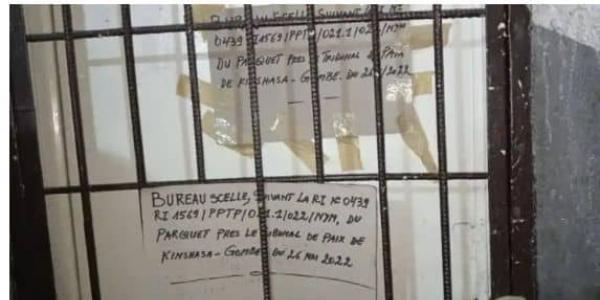 BUREAU SCELLE SUIVANT LA RI N°
0439 RI 1569/PPTP/021.1/022/NJM
DU PARQUET PRES LE TRIBUNAL DE PAIX
DE KINSHASA-GOMBE. DU 26 /2022
BUREAU SCELLE, SUIVANT LA RI N° 0439
RI 1569/PPTP/021.1/022/NJM, DU
PARQUET PRES LE TRIBUNAL DE PAIX DE
KINSHASA-GOMBE. DU 26 MAI 2022